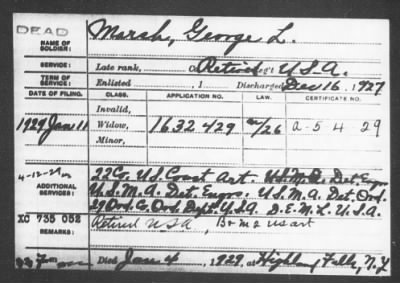 DEAD
NAME OF SOLDIER: Marsh, George L.
SERVICE: Late rank, Co. Retired Reg't U.S.A.
TERM OF SERVICE: Enlisted , 1 Discharged Dec 16, 1927
DATE OF FILING. CLASS. APPLICATION NO. LAW. CERTIFICATE NO.
Invalid,
1929 Jan 11 Widow, 1632429 /26 a-5 4 29
Minor,
4-12-29
ADDITIONAL SERVICES: 22 Co. U.S. Coast Art. U.S.M.A. Det. Engrs
U.S.M.A. Det. Engrs. U.S.M.A. Det. Ord.
Co. Ord. Dept. U.S.A. D.E.M.L. U.S.A.
XC 735 052
REMARKS: Retired USA, US art
Died Jan 4, 1929, at Highland Falls, N.Y